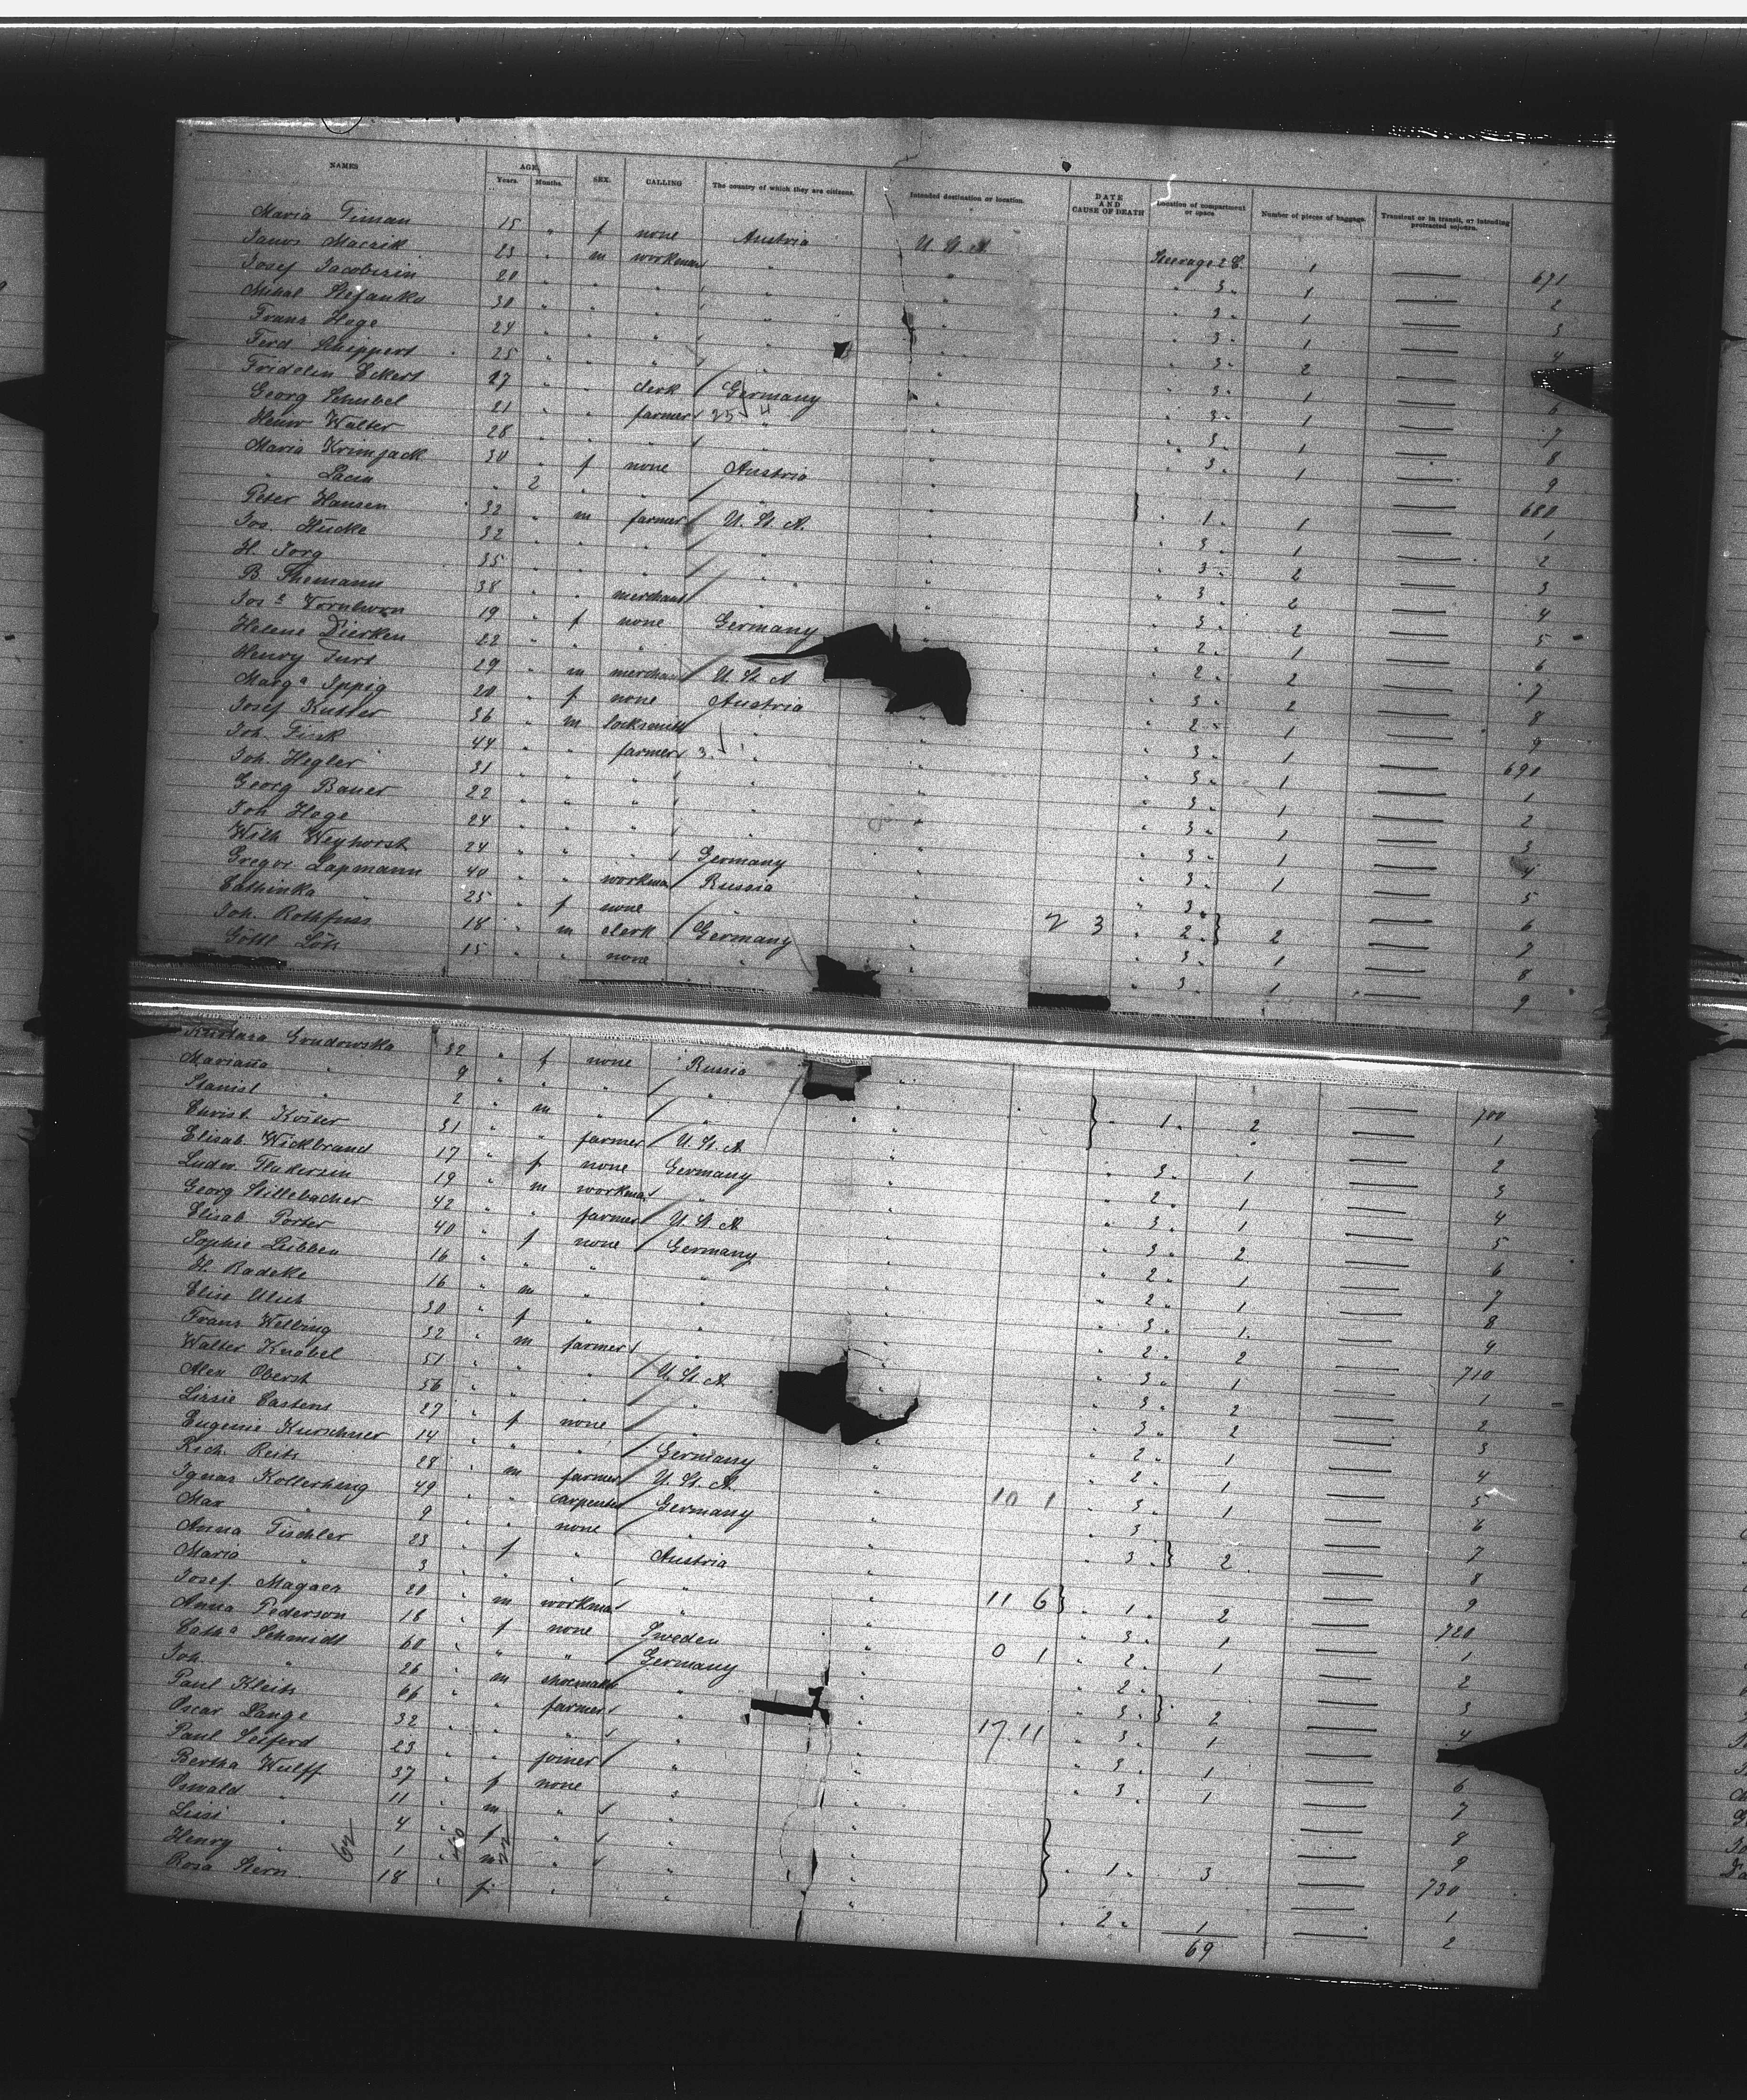 NAMES AGE Years. Months. SEX. CALLING The country of which they are citizens. Intended destination or location. DATE AND CAUSE OF DEATH Location of compartment or space Number of pieces of baggage Transient or in transit, or intending protracted sojourn.
Maria Timan 15 " f none Austria U. St. A. Steerage 2 C. 1 — 671
Janos Macsik 23 " m workman " " " 3 " 1 — 2
Josef 20 " " " " " " 3 " 1 — 3
Mihal Stefanko 30 " " " " " " 3 " 1 — 4
Franz Hege 24 " " " " " " 3 " 2 —
Ferd Schippert 25 " " clerk Germany " " 3 " 1 — 6
Fridelin Eckert 27 " " farmer " " " 3 " 1 — 7
Georg Schubel 21 " " " " " " 3 " 1 — 8
Henr Walter 28 " " " " " " 3 " 1 — 9
Maria Krimjack 30 " f none Austria " } " 1 " 1 — 680
" Lacia " 2 " " " " 1
Peter Hansen 32 " m farmer U. St. A. " " 3 " 1 — 2
Jos. Hücke 32 " " " " " " 3 " 2 — 3
H. Jorg 35 " " " " " " 3 " 2 — 4
B. Themann 38 " " merchant " " " 3 " 2 — 5
19 " f none Germany " " 2 " 1 — 6
Helene Dierken 22 " " " " " " 2 " 2 — 7
Henry 29 " m merchant U. St. A. " " 3 " 2 — 8
Marg a Ippig 20 " f none Austria " " 2 " 1 — 9
Josef Kutter 36 " m locksmith " " " 3 " 1 — 690
Joh. Fink 44 " " farmer " " " 3 " 1 — 1
Joh. Hegler 31 " " " " " " 3 " 1 — 2
Georg Bauer 22 " " " " " " 3 " 1 — 3
Joh. Hege 24 " " " " " " 3 " 1 — 4
Wilh Weyhorst 24 " " " Germany " " 3 " 1 — 5
Gregor Lapmann 40 " " workman Russia " " 3 " } 2 — 6
Cathinka " 25 " f none " " 2 3 " 2 " — 7
Joh. Rothfuss 18 " m clerk Germany " " 3 " 1 — 8
Gottl 15 " " none " " " 3 " 1 — 9
Grudowska 32 " f none Russia " } " 1 " 2 — 700
Marianna " 9 " " " " " — 1
Stanisl " 2 " m " " " — 2
Christ. Köster 31 " " farmer U. St. A. " " 3 " 1 — 3
Elisab Wickbrand 17 " f none Germany " " 2 " 1 — 4
Ludw. 19 " m workman " " " 3 " 1 — 5
Georg Stillebacher 42 " " farmer U. St. A. " " 3 " 2 — 6
Elisab Porter 40 " f none Germany " " 2 " 1 — 7
Sophie Lübben 16 " " " " " " 2 " 1 — 8
H. Radeke 16 " m " " " " 3 " 1 — 9
Elise 30 " f " " " " 2 " 2 — 710
Franz Welbing 32 " m farmer " " " 3 " 1 — 1
Walter Knobel 51 " " " U. St. A. " " 3 " 2 — 2
Alex Oberst 56 " " " " " " 3 " 2 — 3
Lizzie Castens 27 " f none " " " 2 " 1 — 4
Eugenie Kurschner 14 " " " Germany " " 2 " 1 — 5
Rich. Reitz 28 " m farmer U. St. A. " 10 1 " 3 " 1 — 6
Ignaz 49 " " carpenter Germany " " 3 } 2 — 7
Max " 9 " " none " " " 3 " — 8
Anna Tischler 23 " f " Austria " 11 6 } " 1 " 2 — 9
Maria " 3 " " " " " — 720
Josef 20 " m workman " " " 3 " 1 — 1
Anna Pederson 18 " f none Sweden " 0 1 " 2 " 1 — 2
Cath a Schmidt 60 " " " Germany " " 2 " } 2 — 3
Joh. " 26 " m shoemaker " " " 3 " — 4
Paul Kleitz 66 " " farmer " " 17. 11 " 3 " 1 —
Oscar Lange 32 " " " " " " 3 " 1 — 6
Paul Seiferd 23 " " joiner " " " 3 " 1 — 7
Bertha Wulff 37 " f none " " } " 1 " 3 — 8
Oswald " 11 " m " " " — 9
Lissi " 4 " f " " " — 730
Henry " 1 " m " " " — 1
Rosa Stern 18 " f " " " " 2 " 1 — 2
62
69